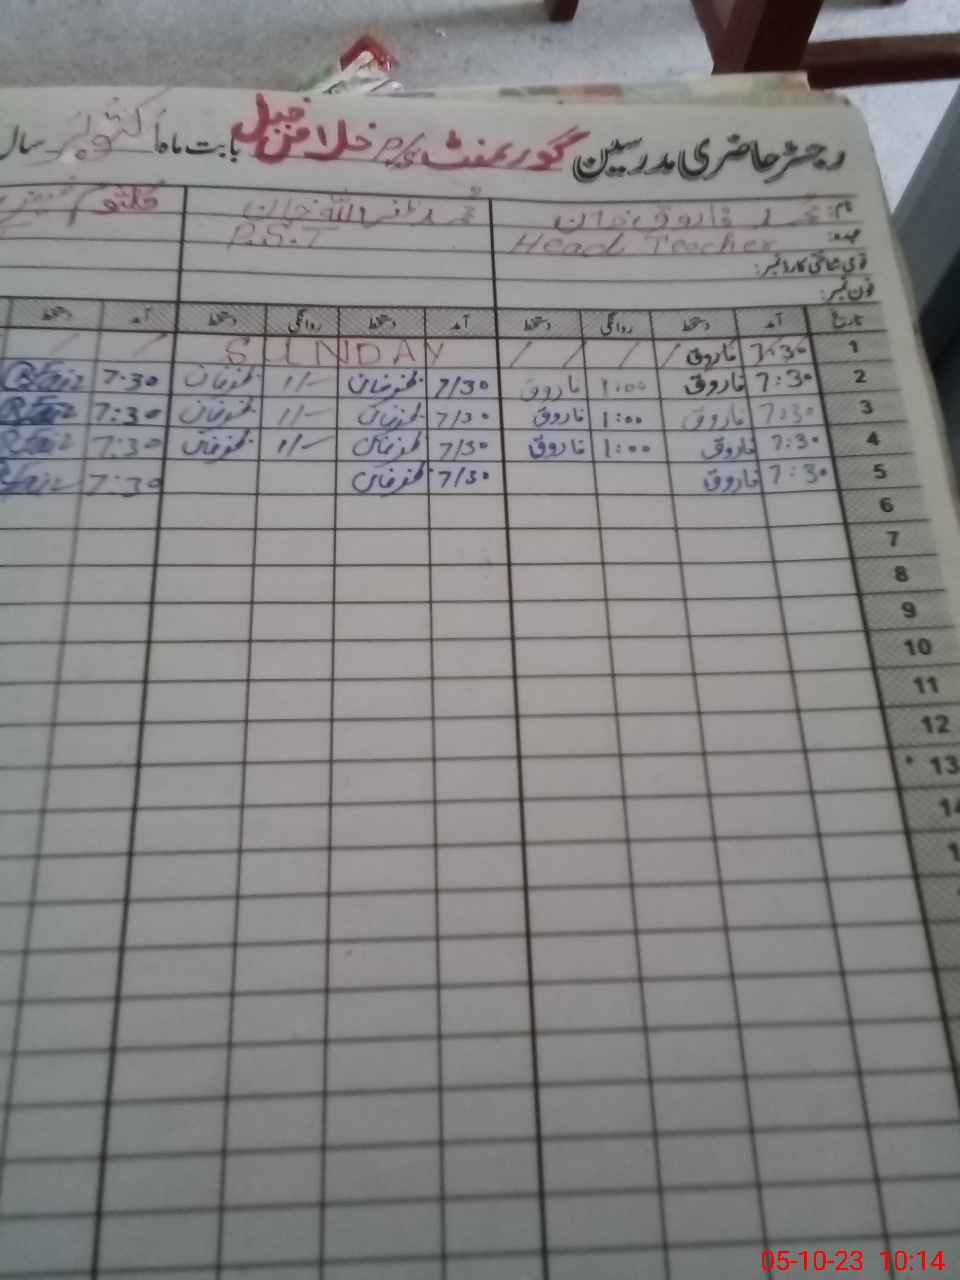 رجسٹر حاضری مدرسین گورنمنٹ خلا من خیل بابت ماہ اکتوبر سال
نام: محمد فاروق خان محمد ظفر اللہ خان
عہدہ: Head Teacher P.S.T
قومی شناختی کارڈ نمبر:
فون نمبر:
تاریخ آمد دستخط روانگی دستخط آمد دستخط روانگی دستخط آمد دستخط
1 7:30 فاروق / / / / SUNDAY / /
2 7:30 فاروق 1:00 فاروق 7/30 ظفر خان 1/- ظفر خان 7:30
3 7:30 فاروق 1:00 فاروق 7/30 ظفر خان 1/- ظفر خان 7:30
4 7:30 فاروق 1:00 فاروق 7/30 ظفر خان 1/- ظفر خان 7:30
5 7:30 فاروق 7/30 ظفر خان 7:30
6
7
8
9
10
11
12
13
05-10-23 10:14